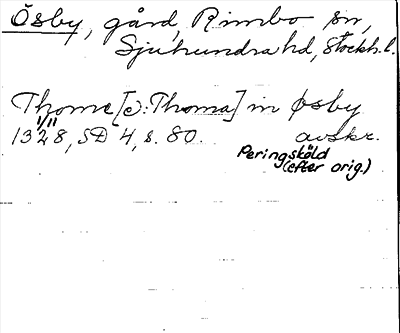 Ösby, gård, Rimbo sn,
Sjuhundra hd, Stockh. l.
Thome [ɔ: Thoma] in Øsby
13 11/11 28, SD 4, s. 80. avskr.
Peringsköld
(efter orig.)